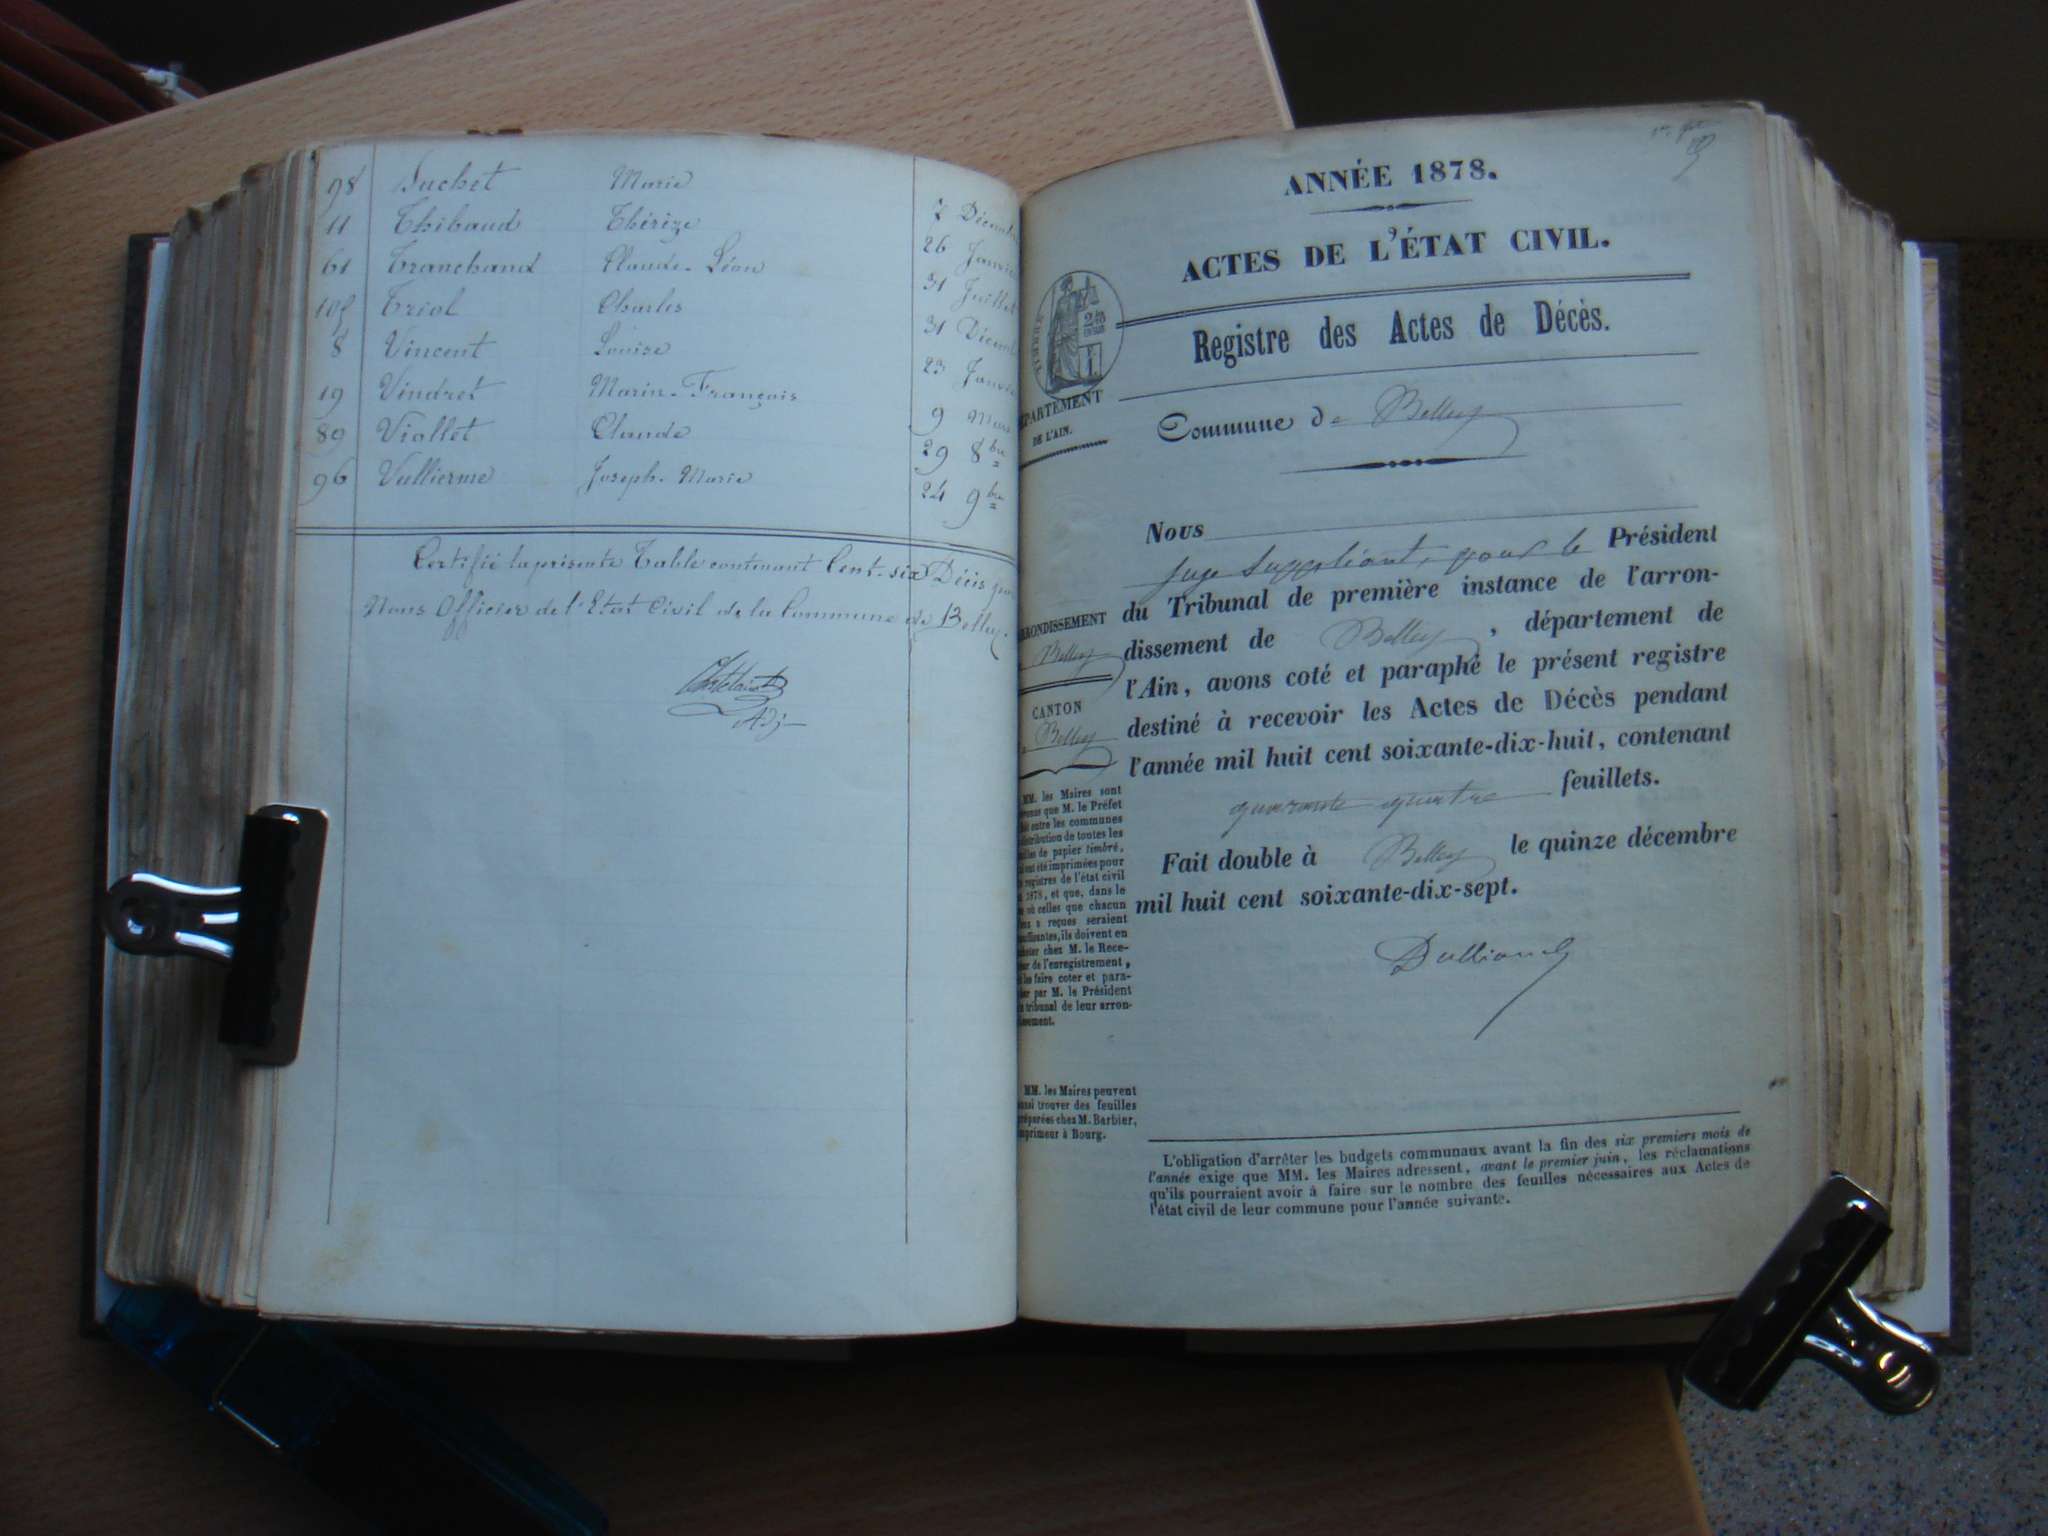 98 Suchet Marie 7 Décembre
11 Thibaud Thérèze 26 Janvier
61 Tranchand Claude-Léon 31 Juillet
105 Triol Charles 31 Décemb
8 Vincent Louise 23 Janvie
19 Vindret Marin-François 9 Mars
89 Viollet Claude 29 8bre
96 Vullierme Joseph-Marie 24 9bre
Certifié la présente Table contenant Cent-six Décès par
Nous Officier de l'Etat Civil de la Commune de Belley.
Adj
ANNÉE 1878.
ACTES DE L'ÉTAT CIVIL.
Registre des Actes de Décès.
DÉPARTEMENT
DE L'AIN.
Commune de Belley
Nous
juge suppléant, pour le Président
du Tribunal de première instance de l'arron-
dissement de Belley, département de
l'Ain, avons coté et paraphé le présent registre
destiné à recevoir les Actes de Décès pendant
l'année mil huit cent soixante-dix-huit, contenant
quarante quatre feuillets.
Fait double à Belley le quinze décembre
mil huit cent soixante-dix-sept.
RRONDISSEMENT
Belley
CANTON
Belley
MM. les Maires sont
venus que M. le Préfet
entre les communes
distribution de toutes les
lles de papier timbré,
ont été imprimées pour
registres de l'état civil
1878, et que, dans le
où celles que chacun
reçues seraient
uffisantes, ils doivent en
heter chez M. le Rece-
eur de l'enregistrement,
les faire coter et para-
er par M. le Président
tribunal de leur arron-
issement.
MM. les Maires peuvent
ussi trouver des feuilles
préparées chez M. Barbier,
mprimeur à Bourg.
L'obligation d'arrêter les budgets communaux avant la fin des six premiers mois de
l'année exige que MM. les Maires adressent, avant le premier juin, les réclamations
qu'ils pourraient avoir à faire sur le nombre des feuilles nécessaires aux Actes de
l'état civil de leur commune pour l'année suivante.